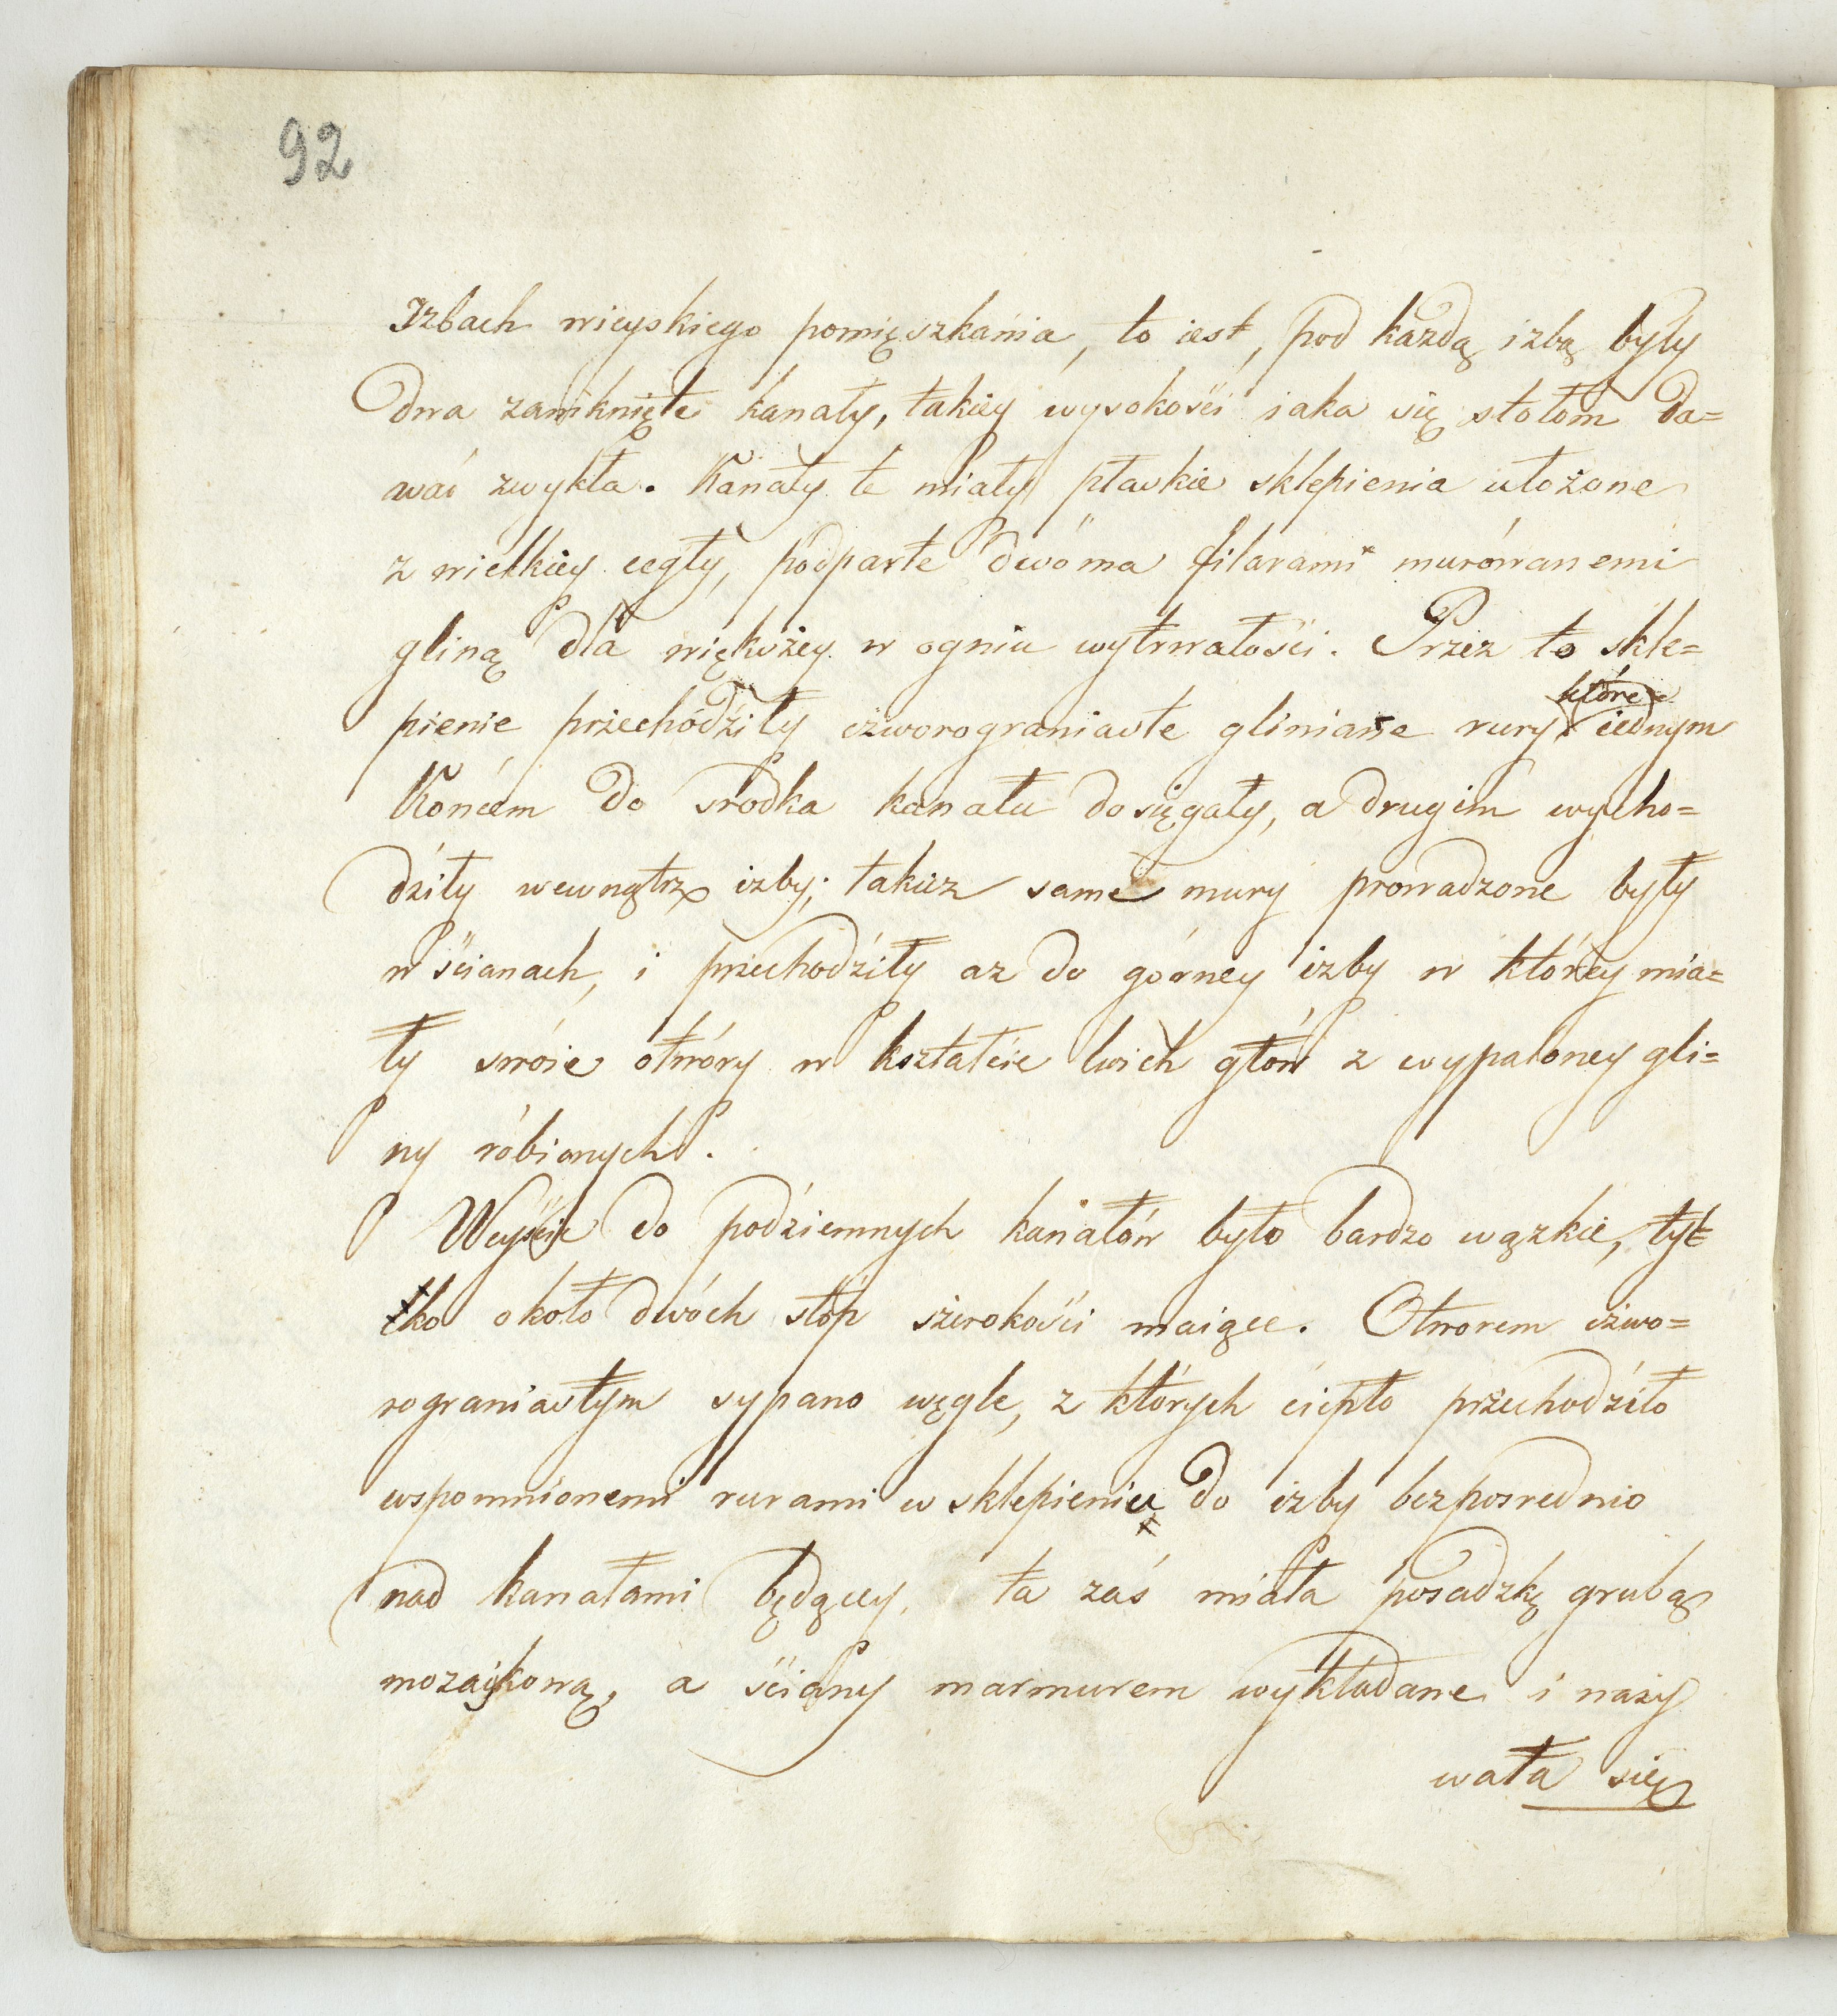 92
Izbach wieyskiego pomięszkania, to iest, pod każdą izbą były
dwa zamknięte kanały, takiey wysokości iaka się stołom da=
wać zwykła. Kanały te miały płaskie sklepienia ułożone
z wielkiey cegły, podparte dwöma filarami murówanemi
gliną dla większey w ogniu wytrwałości. Przez to skle=
które
pienie przechódziły czworograniaste gliniane rury iednym
Końcem do srodka kanału dosięgały, a drugim wycho=
dziły wewnątrz izby; takież same mury prowadzone były
w ścianach, i przechodziły az do górney izby w którey mia=
ły swóie otwóry w kształcie lwich głów z wypaloney gli=
ny róbionych.
Weyście do podziemnych kanałów było bardzo wązkie, tyl
ko około dwóch stóp szerokości maiące. Otworem czwo=
rograniastym sypano węgle, z których ciepło przechodziło
wspomnionemi rurami w sklepieniu do izby bezposrednio
nad kanałami będącey, ta zaś miała posadzkę grubą
mozaykową, a ściany marmurem wykładane i nazy
wała się